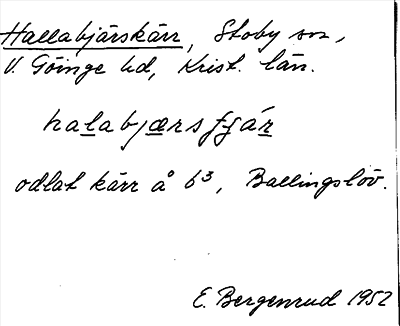 Hallabjärskärr, Stoby sn,
V. Göinge hd, Krist. län.
halabjærsʃɟár
odlat kärr å b3, Ballingslöv.
E. Bergenrud 1952